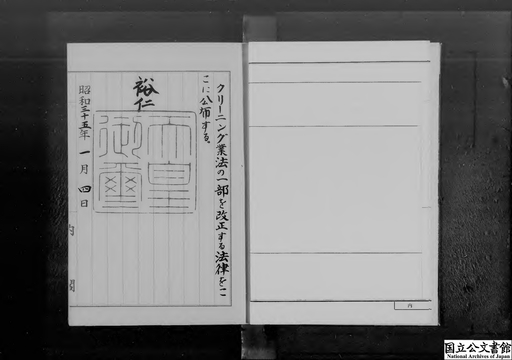 クリーニング業法の一部を改正する法律をこ
こに公布する。
裕仁
天皇
御璽
昭和三十五年一月四日
内閣
内
国立公文書館
National Archives of Japan